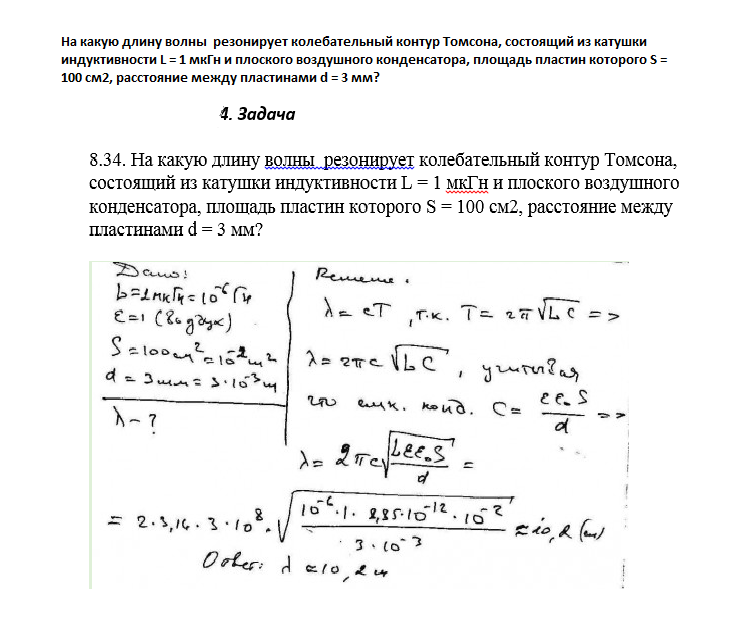 На какую длину волны резонирует колебательный контур Томсона, состоящий из катушки
индуктивности L = 1 мкГн и плоского воздушного конденсатора, площадь пластин которого S =
100 см2, расстояние между пластинами d = 3 мм?
4. Задача
8.34. На какую длину волны резонирует колебательный контур Томсона,
состоящий из катушки индуктивности L = 1 мкГн и плоского воздушного
конденсатора, площадь пластин которого S = 100 см2, расстояние между
пластинами d = 3 мм?
Дано:
L=1мкГн=10⁻⁶Гн
ε=1 (воздух)
S=100см²=10⁻²м²
d=3мм=3·10⁻³м
λ-?
Решение.
λ=cT, т.к. T=2π√LC =>
λ=2πc√LC, учитывая
что емк. конд. C= εε₀S/d =>
λ=2πc√(Lεε₀S/d) =
= 2·3,14·3·10⁸·√(10⁻⁶·1·8,85·10⁻¹²·10⁻²/3·10⁻³) ≈10,2 (м)
Ответ: λ≈10,2 м